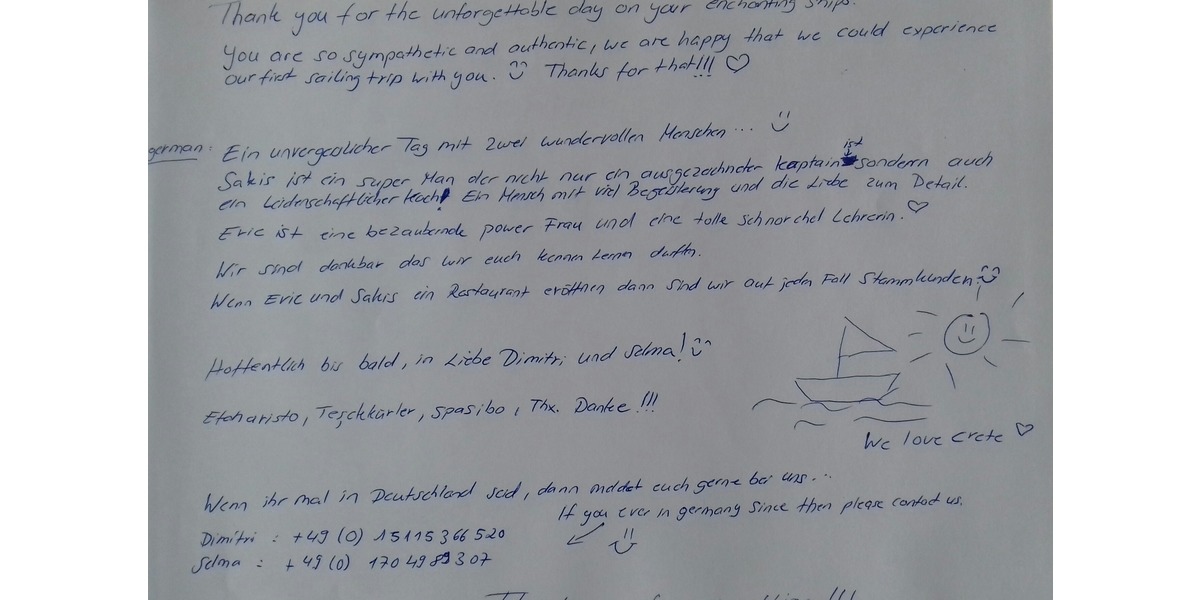 Thank you for the unforgettable day on your enchanting ships.
You are so sympathetic and authentic, we are happy that we could experience
our first sailing trip with you. Thanks for that!!! ♡
german: Ein unvergesslicher Tag mit zwei wundervollen Menschen...
ist
Sakis ist ein super Man der nicht nur ein ausgezeichneter kaptain sondern auch
ein leidenschaftlicher Koch! Ein Mensch mit viel Begeisterung und die Liebe zum Detail.
Eric ist eine bezaubernde power Frau und eine tolle schnorchel Lehrerin. ♡
Wir sind dankbar das wir euch kennen lernen durften.
Wenn Eric und Sakis ein Restaurant eröffnen dann sind wir auf jeden Fall Stammkunden!
Hoffentlich bis bald, in Liebe Dimitri und Selma!
Efcharisto, Teşekkürler, Spasibo, Thx. Danke!!!
We love crete ♡
Wenn ihr mal in Deutschland seid, dann meldet euch gerne bei uns...
If you ever in germany since then please contact us.
Dimitri : +49 (0) 15115366520
Selma : +49 (0) 1704989307